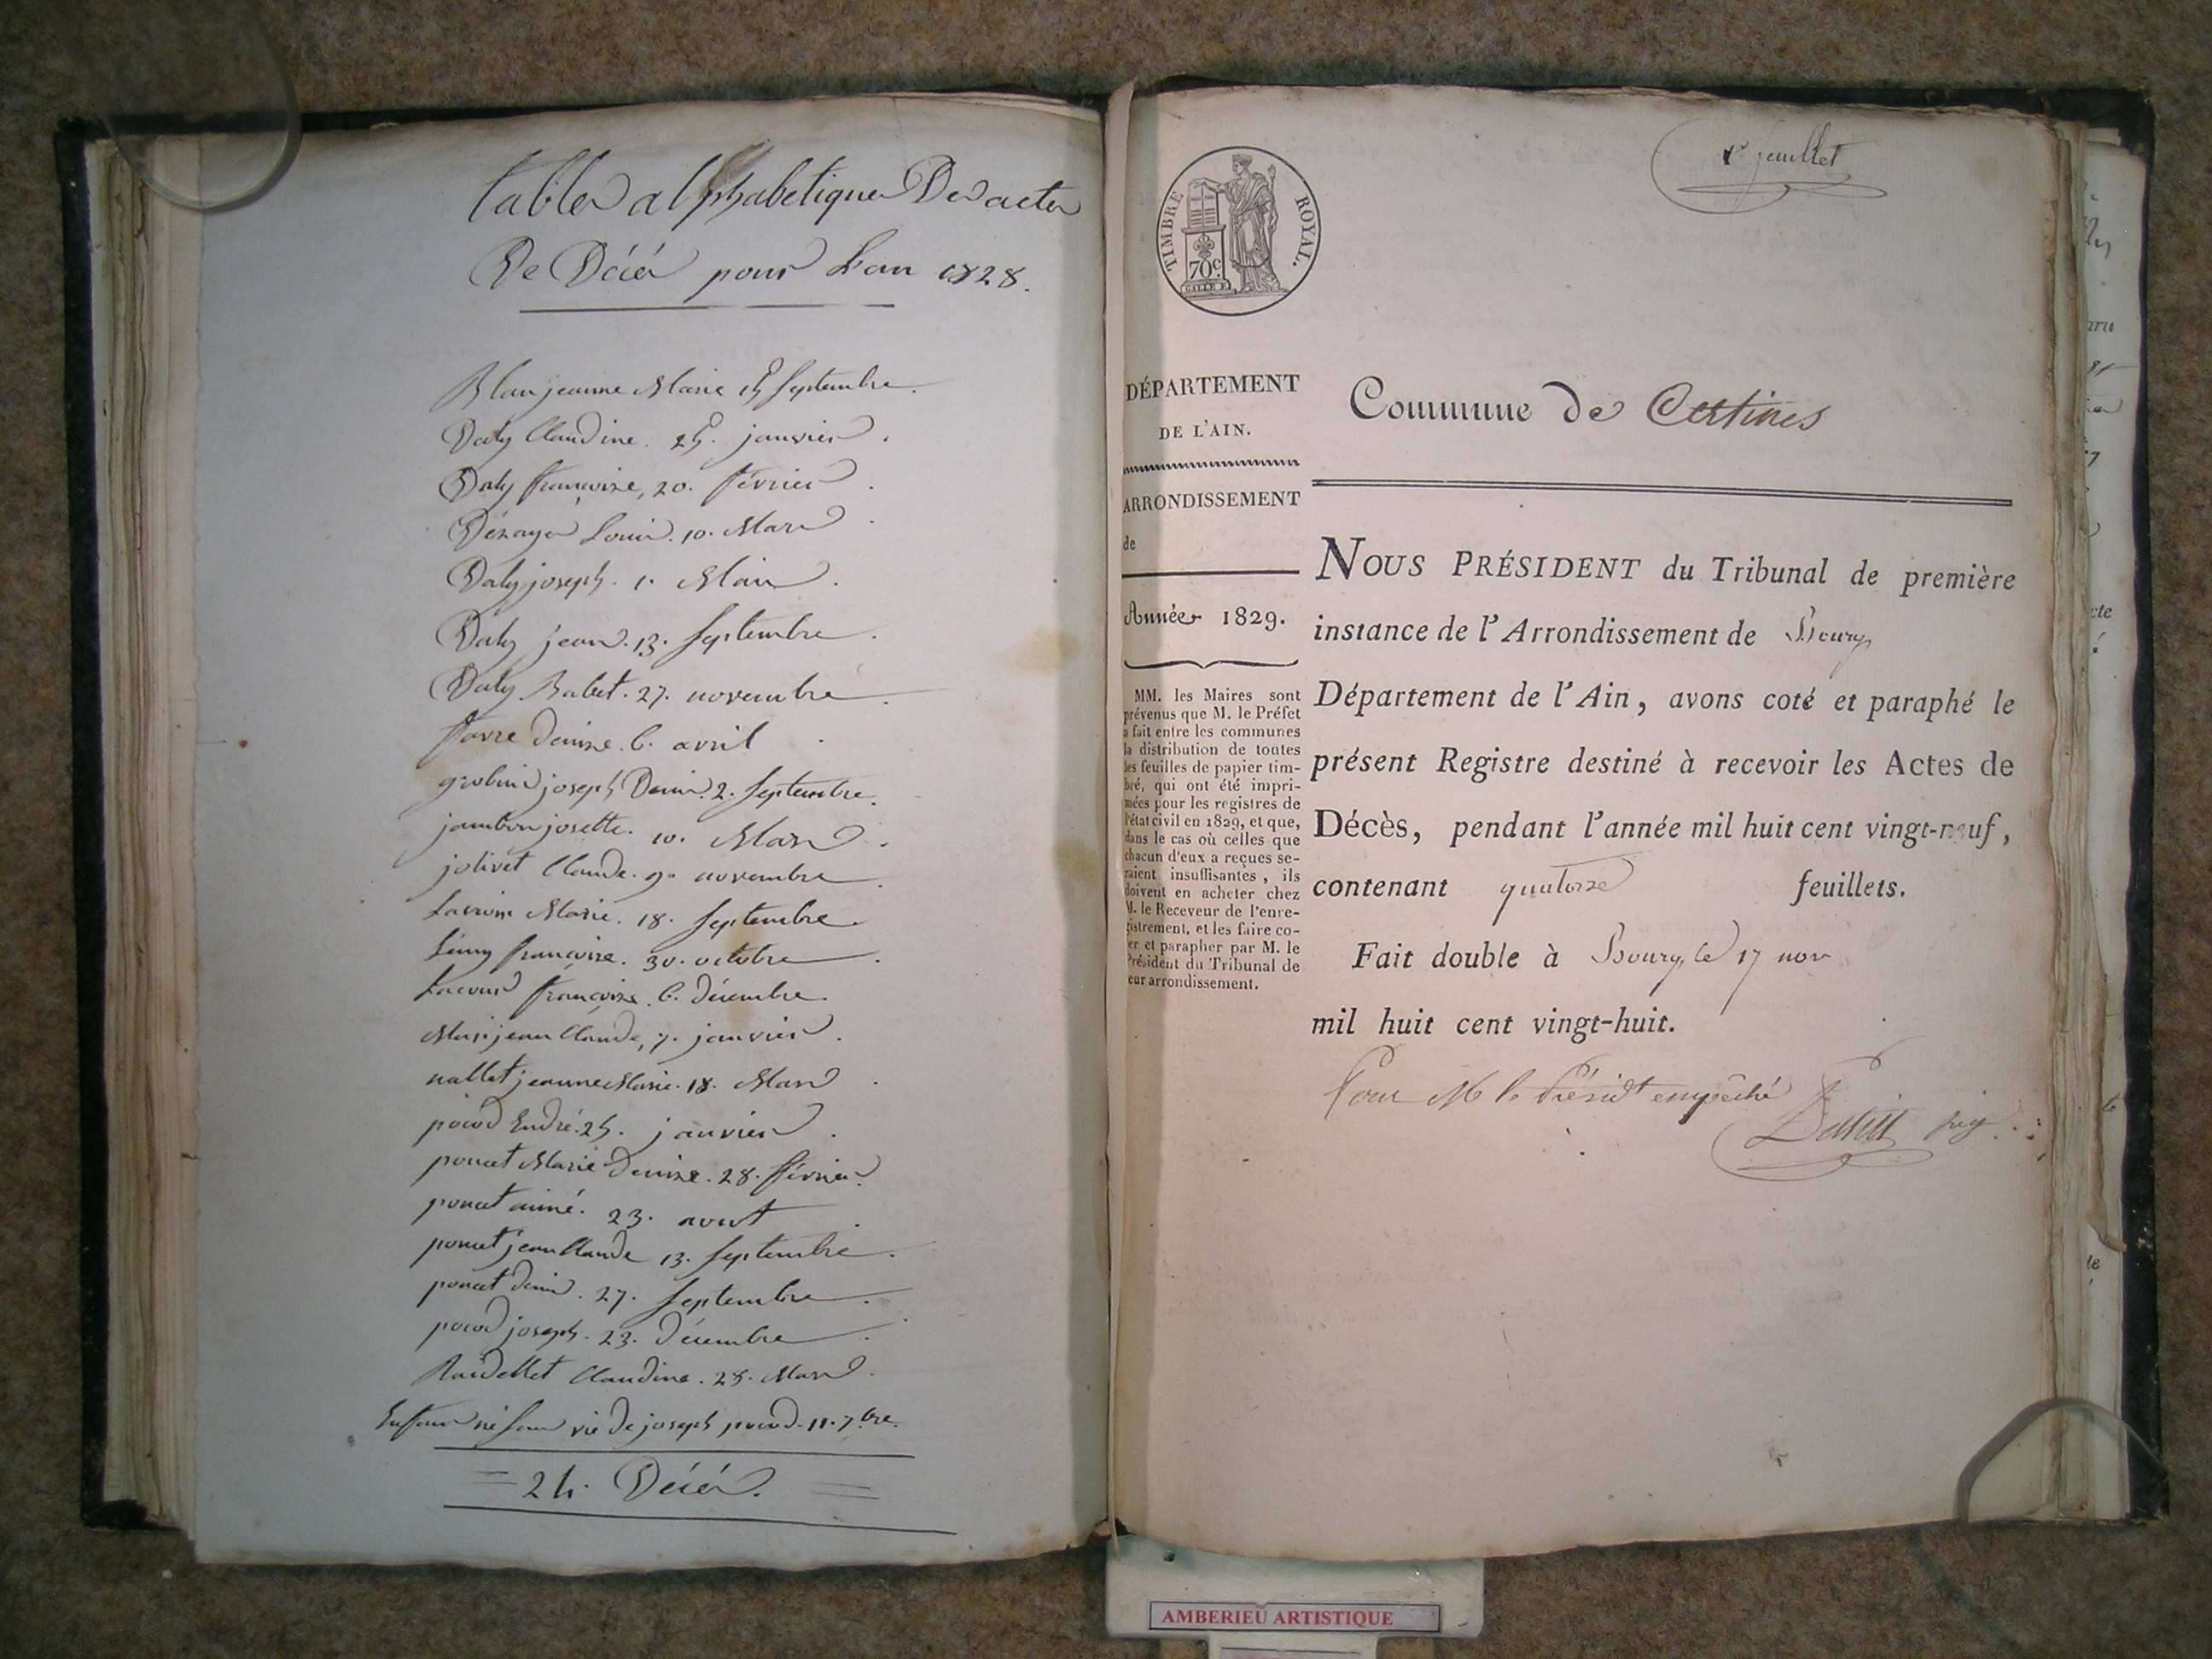 tables alphabetiques Des actes
De Décés pour L'an 1828.
Blanc jeanne Marie 15 Septembre.
Daly Claudine. 25. janvier.
Daly françoise, 20. février.
Louis. 10. Mars.
Daly joseph. 1. Mai.
Daly jean. 13. Septembre.
Daly Babet. 27. novembre.
favre Denise. 6. avril.
joseph Denis. 2. Septembre.
jambon josette. 10. Mars.
jolivet Claude. 9. novembre.
Marie. 18. Septembre.
françoise. 30. octobre.
françoise. 6. Décembre.
jean Claude, 7. janvier.
nallet jeanne Marie. 18. Mars.
pocod André. 25. janvier.
poncet Marie Denise. 28. février.
poncet aimé. 23. avout.
poncet jean Claude 13. Septembre.
poncet denis. 27. Septembre.
pocod joseph. 23. Décembre.
Claudine. 28. Mars.
Enfant né sans vie De joseph pocod. 11. 7.bre.
= 24. Décés. =
1er feuillet
TIMBRE ROYAL.
70c
GALLE F.
DÉPARTEMENT
DE L'AIN.
ARRONDISSEMENT
de
Année 1829.
MM. les Maires sont
prévenus que M. le Préfet
a fait entre les communes
la distribution de toutes
les feuilles de papier tim-
bré, qui ont été impri-
mées pour les registres de
l'état civil en 1829, et que,
dans le cas où celles que
chacun d'eux a reçues se-
raient insuffisantes, ils
doivent en acheter chez
M. le Receveur de l'enre-
gistrement, et les faire co-
ter et parapher par M. le
Président du Tribunal de
leur arrondissement.
Commune de Certines
NOUS PRÉSIDENT du Tribunal de première
instance de l'Arrondissement de Bourg
Département de l'Ain, avons coté et paraphé le
présent Registre destiné à recevoir les Actes de
Décès, pendant l'année mil huit cent vingt-neuf,
contenant quatorze feuillets.
Fait double à Bourg, le 17 nov
mil huit cent vingt-huit.
Pour M le Présidt empêché
AMBERIEU ARTISTIQUE